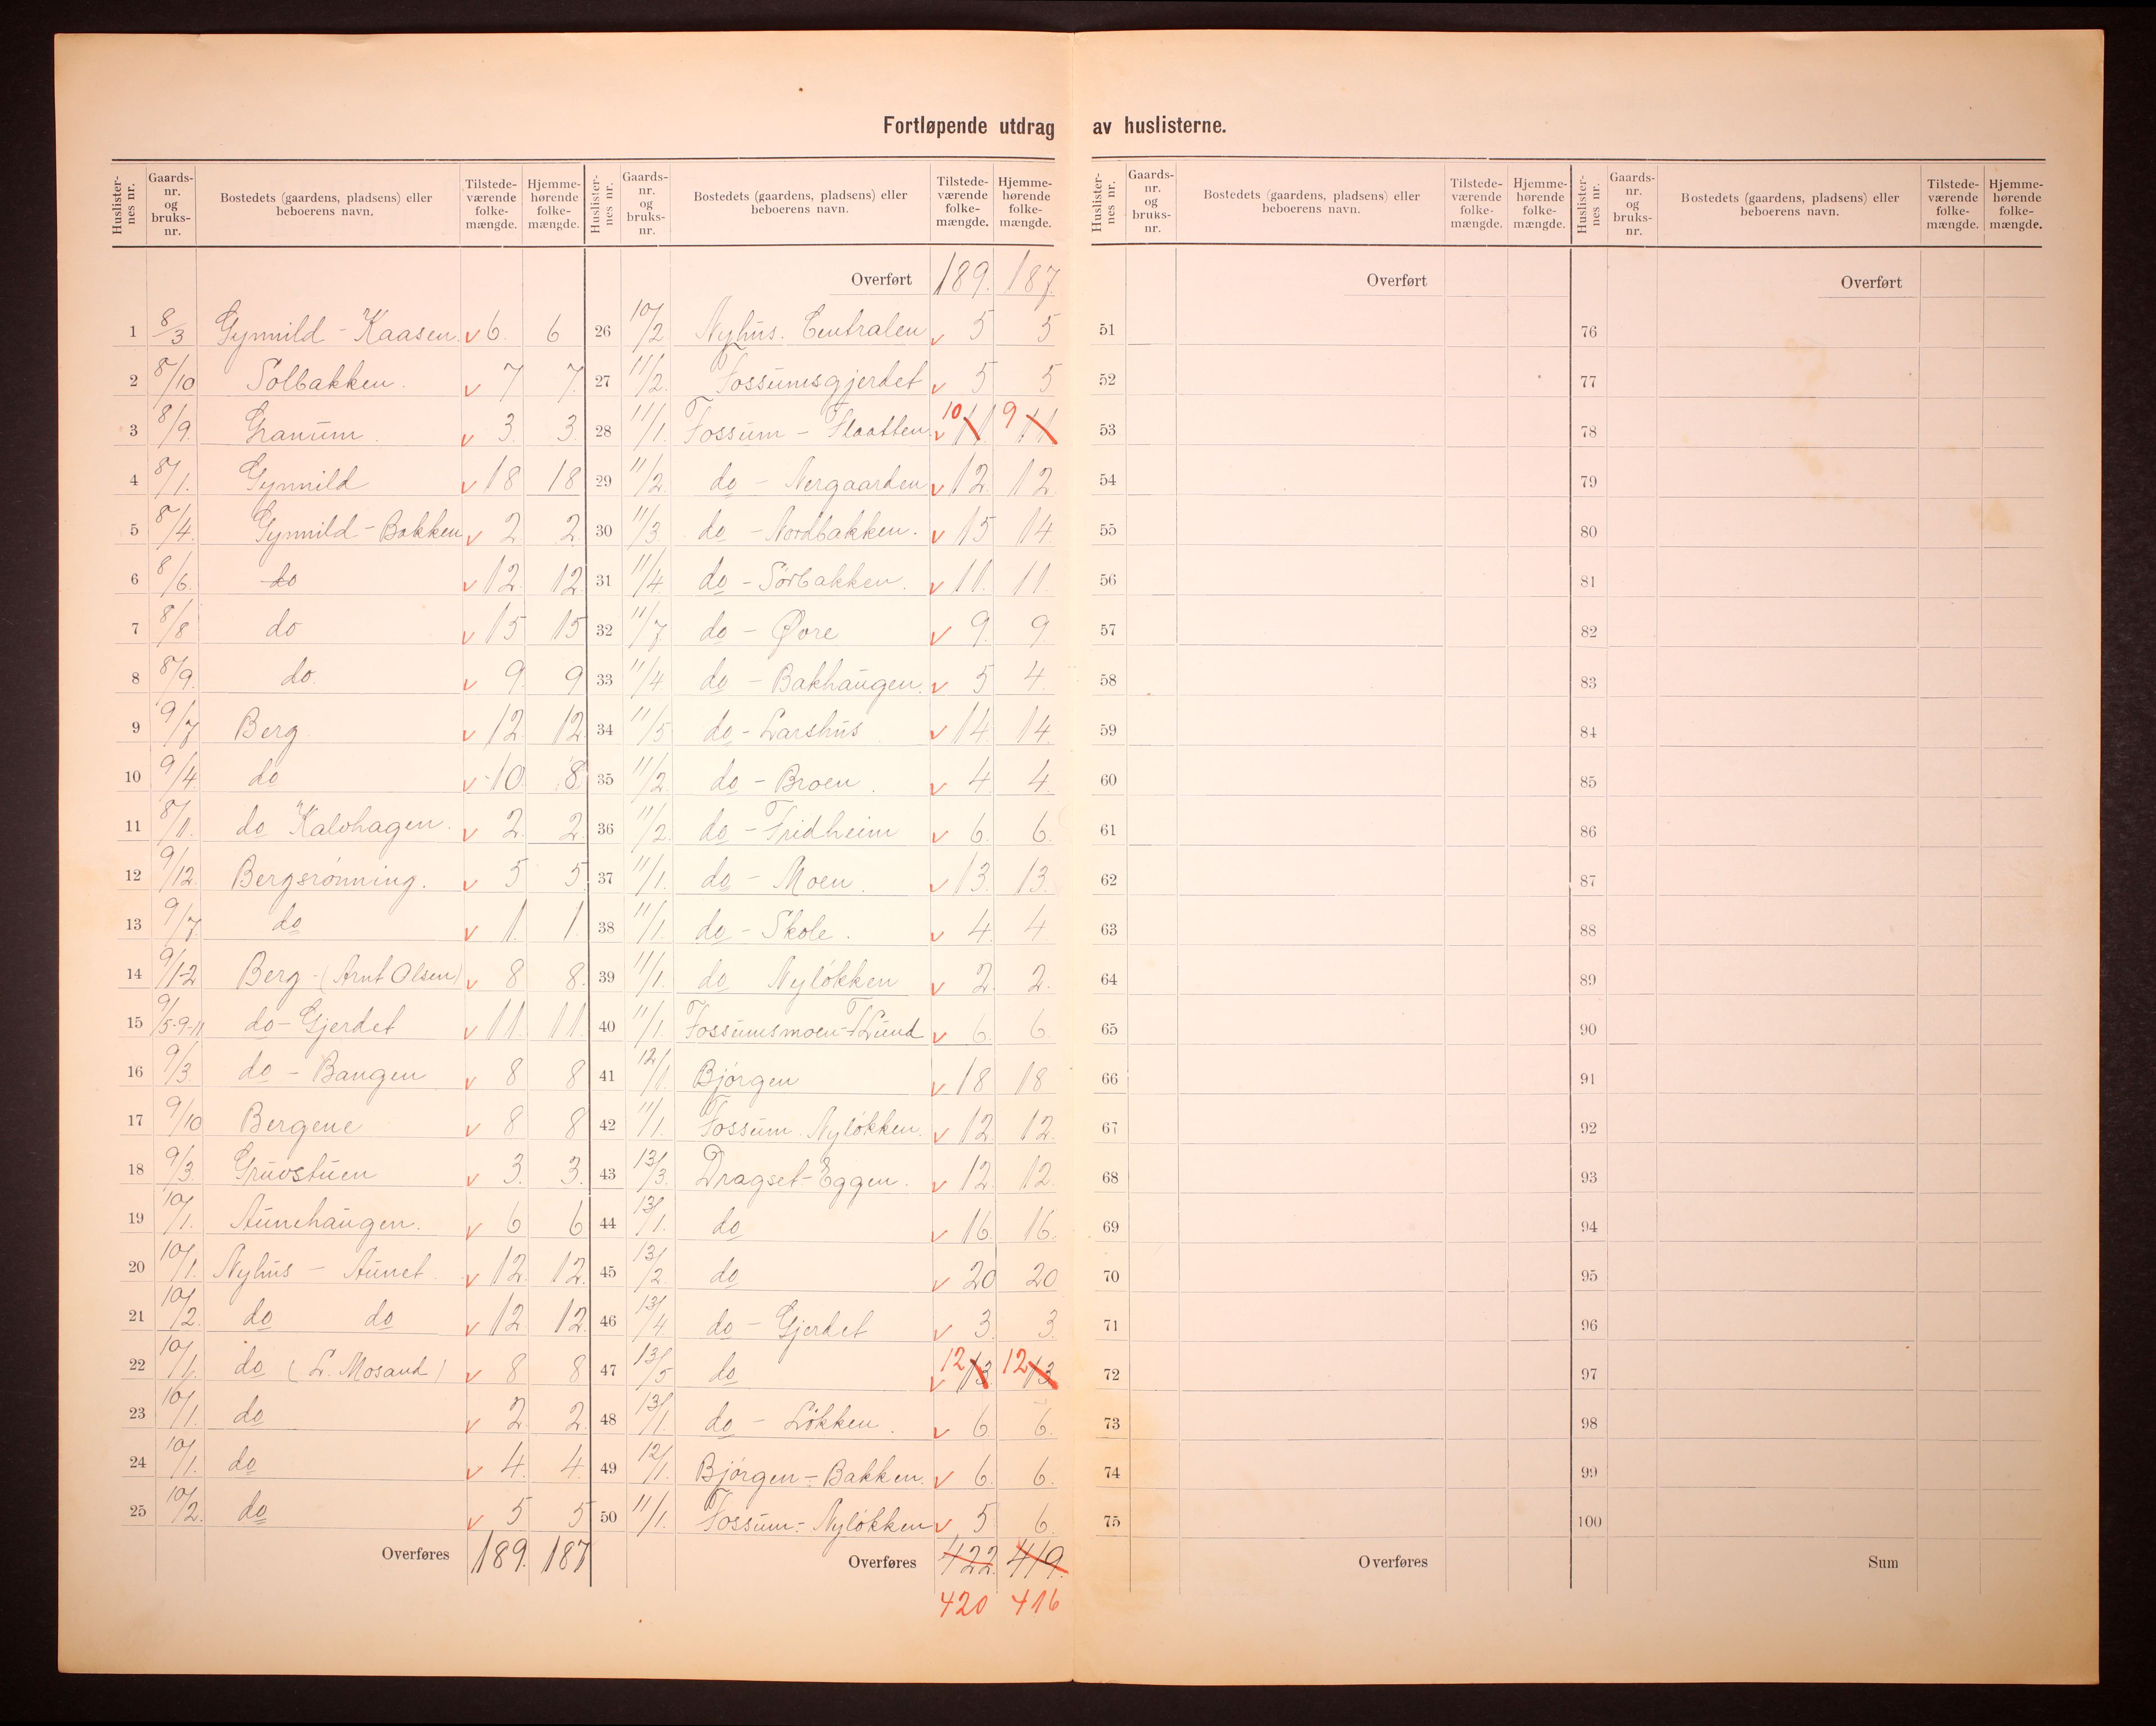 Fortløpende utdrag av huslisterne.
Huslister-nes nr. | Gaards-nr. og bruks-nr. | Bostedets (gaardens, pladsens) eller beboerens navn. | Tilstede-værende folke-mængde. | Hjemme-hørende folke-mængde.
1 8/3 Gynnild - Kaasen. v 6. 6
2 8/10 Solbakken. v 7 7.
3 8/9. Granum. v 3. 3.
4 8/1. Gynnild v 18 18
5 8/4. Gynnild - Bakken v 2 2
6 8/6. do v 12. 12
7 8/8 do v 15 15
8 8/9. do. v 9. 9
9 9/7 Berg v 12 12
10 9/4. do v 10. 8
11 8/11. do Kalvhagen. v 2. 2.
12 9/12. Bergsrønning. v 5 5
13 9/7. do v 1. 1.
14 9/1-2 Berg - (Arnt Olsen) v 8 8.
15 9/5-9-11 do - Gjerdet v 11. 11.
16 9/3. do - Baugen v 8 8
17 9/10 Bergene v 8 8
18 9/3. Gruvstuen v 3. 3.
19 10/1. Aunehaugen. v 6 6
20 10/1. Nyhus - Aunet. v 12. 12.
21 10/2. do do v 12 12
22 10/1. do (L. Mosand) v 8 8
23 10/1. do v 2. 2.
24 10/1. do v 4. 4.
25 10/2. do v 5 5
Overføres 189. 187
Huslister-nes nr. | Gaards-nr. og bruks-nr. | Bostedets (gaardens, pladsens) eller beboerens navn. | Tilstede-værende folke-mængde. | Hjemme-hørende folke-mængde.
Overført 189. 187.
26 10/2 Nyhus. Centralen v 5 5
27 11/2. Fossumsgjerdet v 5 5
28 11/1. Fossum - Flaatten v 10 11. 9 11
29 11/2. do - Nergaarden v 12. 12.
30 11/3. do - Nordbakken. v 15 14.
31 11/4. do - Sörbakken. v 11. 11.
32 11/7. do - Øvre v 9. 9.
33 11/4. do - Bakhaugen. v 5 4.
34 11/5 do - Larshus v 14 14.
35 11/2. do - Broen. v 4. 4.
36 11/2. do - Fridheim v 6. 6.
37 11/1. do - Moen. v 13. 13.
38 11/1. do - Skole. v 4. 4
39 11/1. do Nyløkken v 2. 2.
40 11/1. Fossumsmoen - T Lund v 6. 6.
41 12/1. Bjørgen v 18 18
42 11/1. Fossum. Nyløkken. v 12. 12.
43 13/3. Dragset - Eggen. v 12. 12.
44 13/1. do v 16. 16.
45 13/2. do v 20 20
46 13/4 do - Gjerdet v 3. 3.
47 13/5 do v 12 13. 12 13
48 13/1. do - Løkken. v 6 6.
49 12/1. Bjørgen - Bakken. v 6. 6.
50 11/1. Fossum - Nyløkken v 5 6.
Overføres 422. 419.
420 416
Huslister-nes nr. | Gaards-nr. og bruks-nr. | Bostedets (gaardens, pladsens) eller beboerens navn. | Tilstede-værende folke-mængde. | Hjemme-hørende folke-mængde.
Overført
51
52
53
54
55
56
57
58
59
60
61
62
63
64
65
66
67
68
69
70
71
72
73
74
75
Overføres
Huslister-nes nr. | Gaards-nr. og bruks-nr. | Bostedets (gaardens, pladsens) eller beboerens navn. | Tilstede-værende folke-mængde. | Hjemme-hørende folke-mængde.
Overført
76
77
78
79
80
81
82
83
84
85
86
87
88
89
90
91
92
93
94
95
96
97
98
99
100
Sum